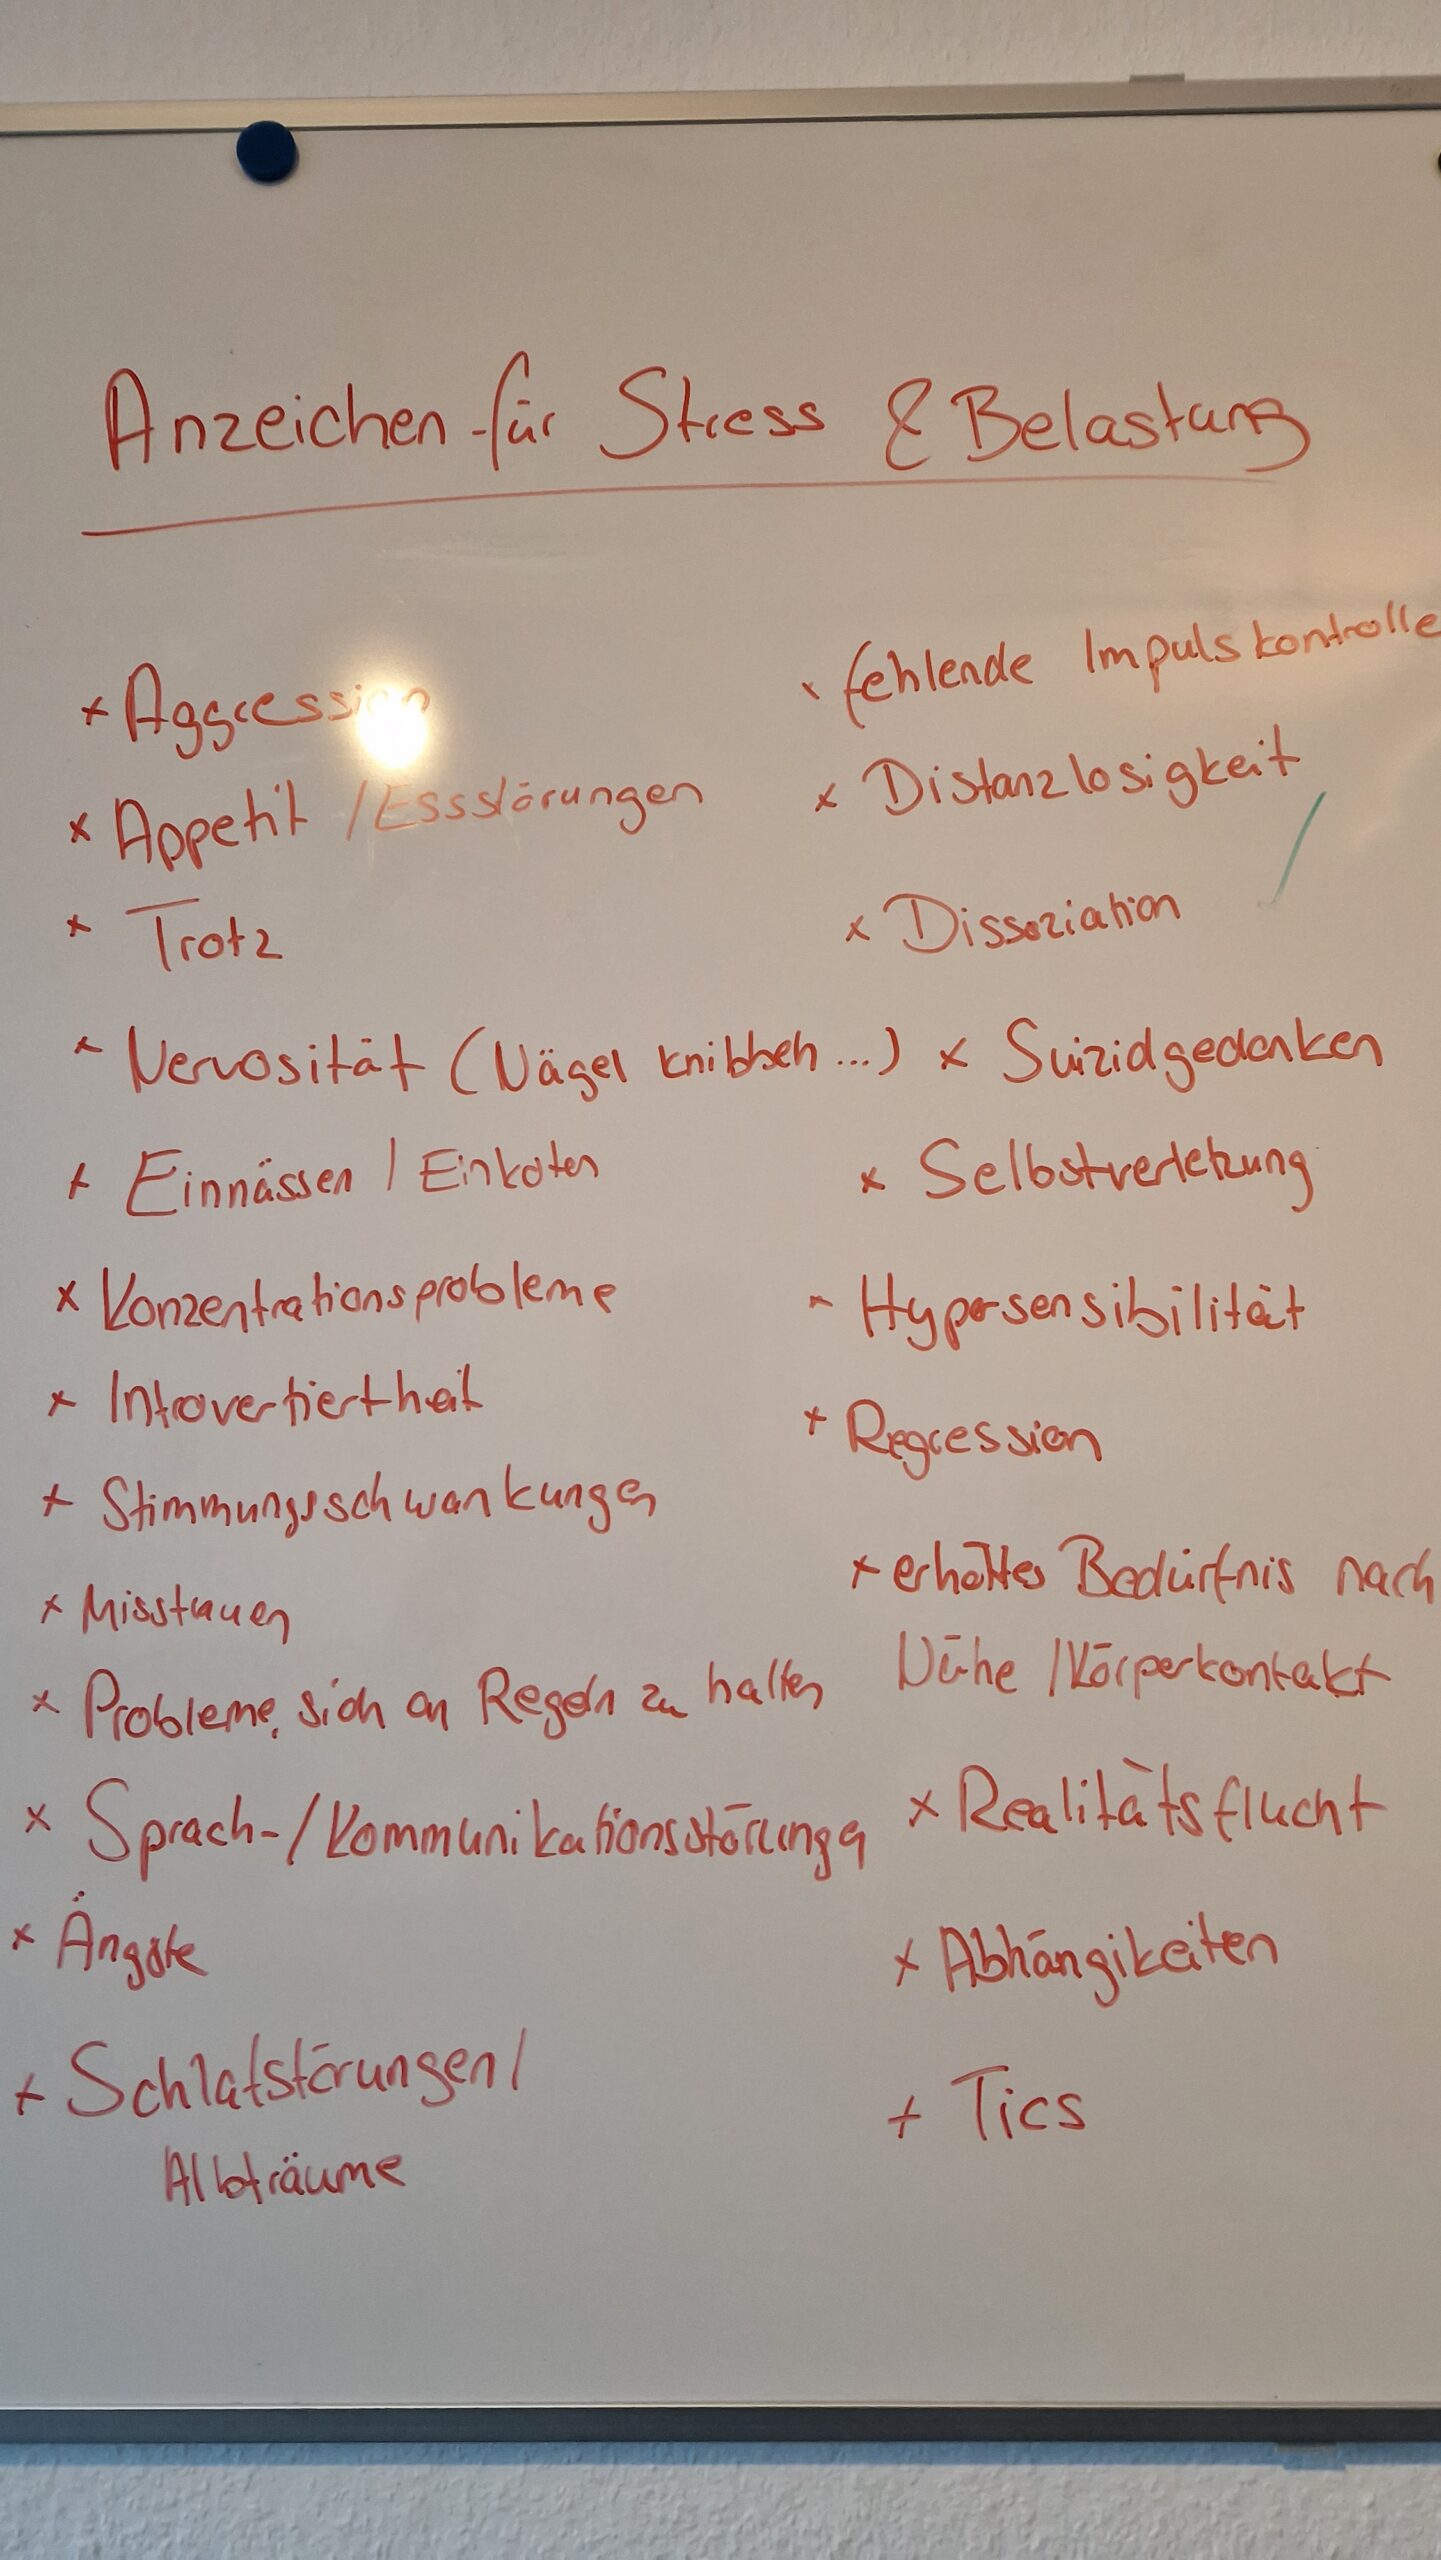 Anzeichen für Stress & Belastung
x Aggression
x Appetit / Essstörungen
x Trotz
x Nervosität (Nägel knibbeln ...)
x Einnässen / Einkoten
x Konzentrationsprobleme
x Introvertiertheit
x Stimmungsschwankungen
x Misstrauen
x Probleme, sich an Regeln zu halten
x Sprach-/Kommunikationsstörungen
x Ängste
x Schlafstörungen/
Albträume
x fehlende Impulskontrolle
x Distanzlosigkeit
x Dissoziation
x Suizidgedanken
x Selbstverletzung
x Hypersensibilität
x Regression
x erhöhtes Bedürfnis nach
Nähe /Körperkontakt
x Realitätsflucht
x Abhängikeiten
x Tics